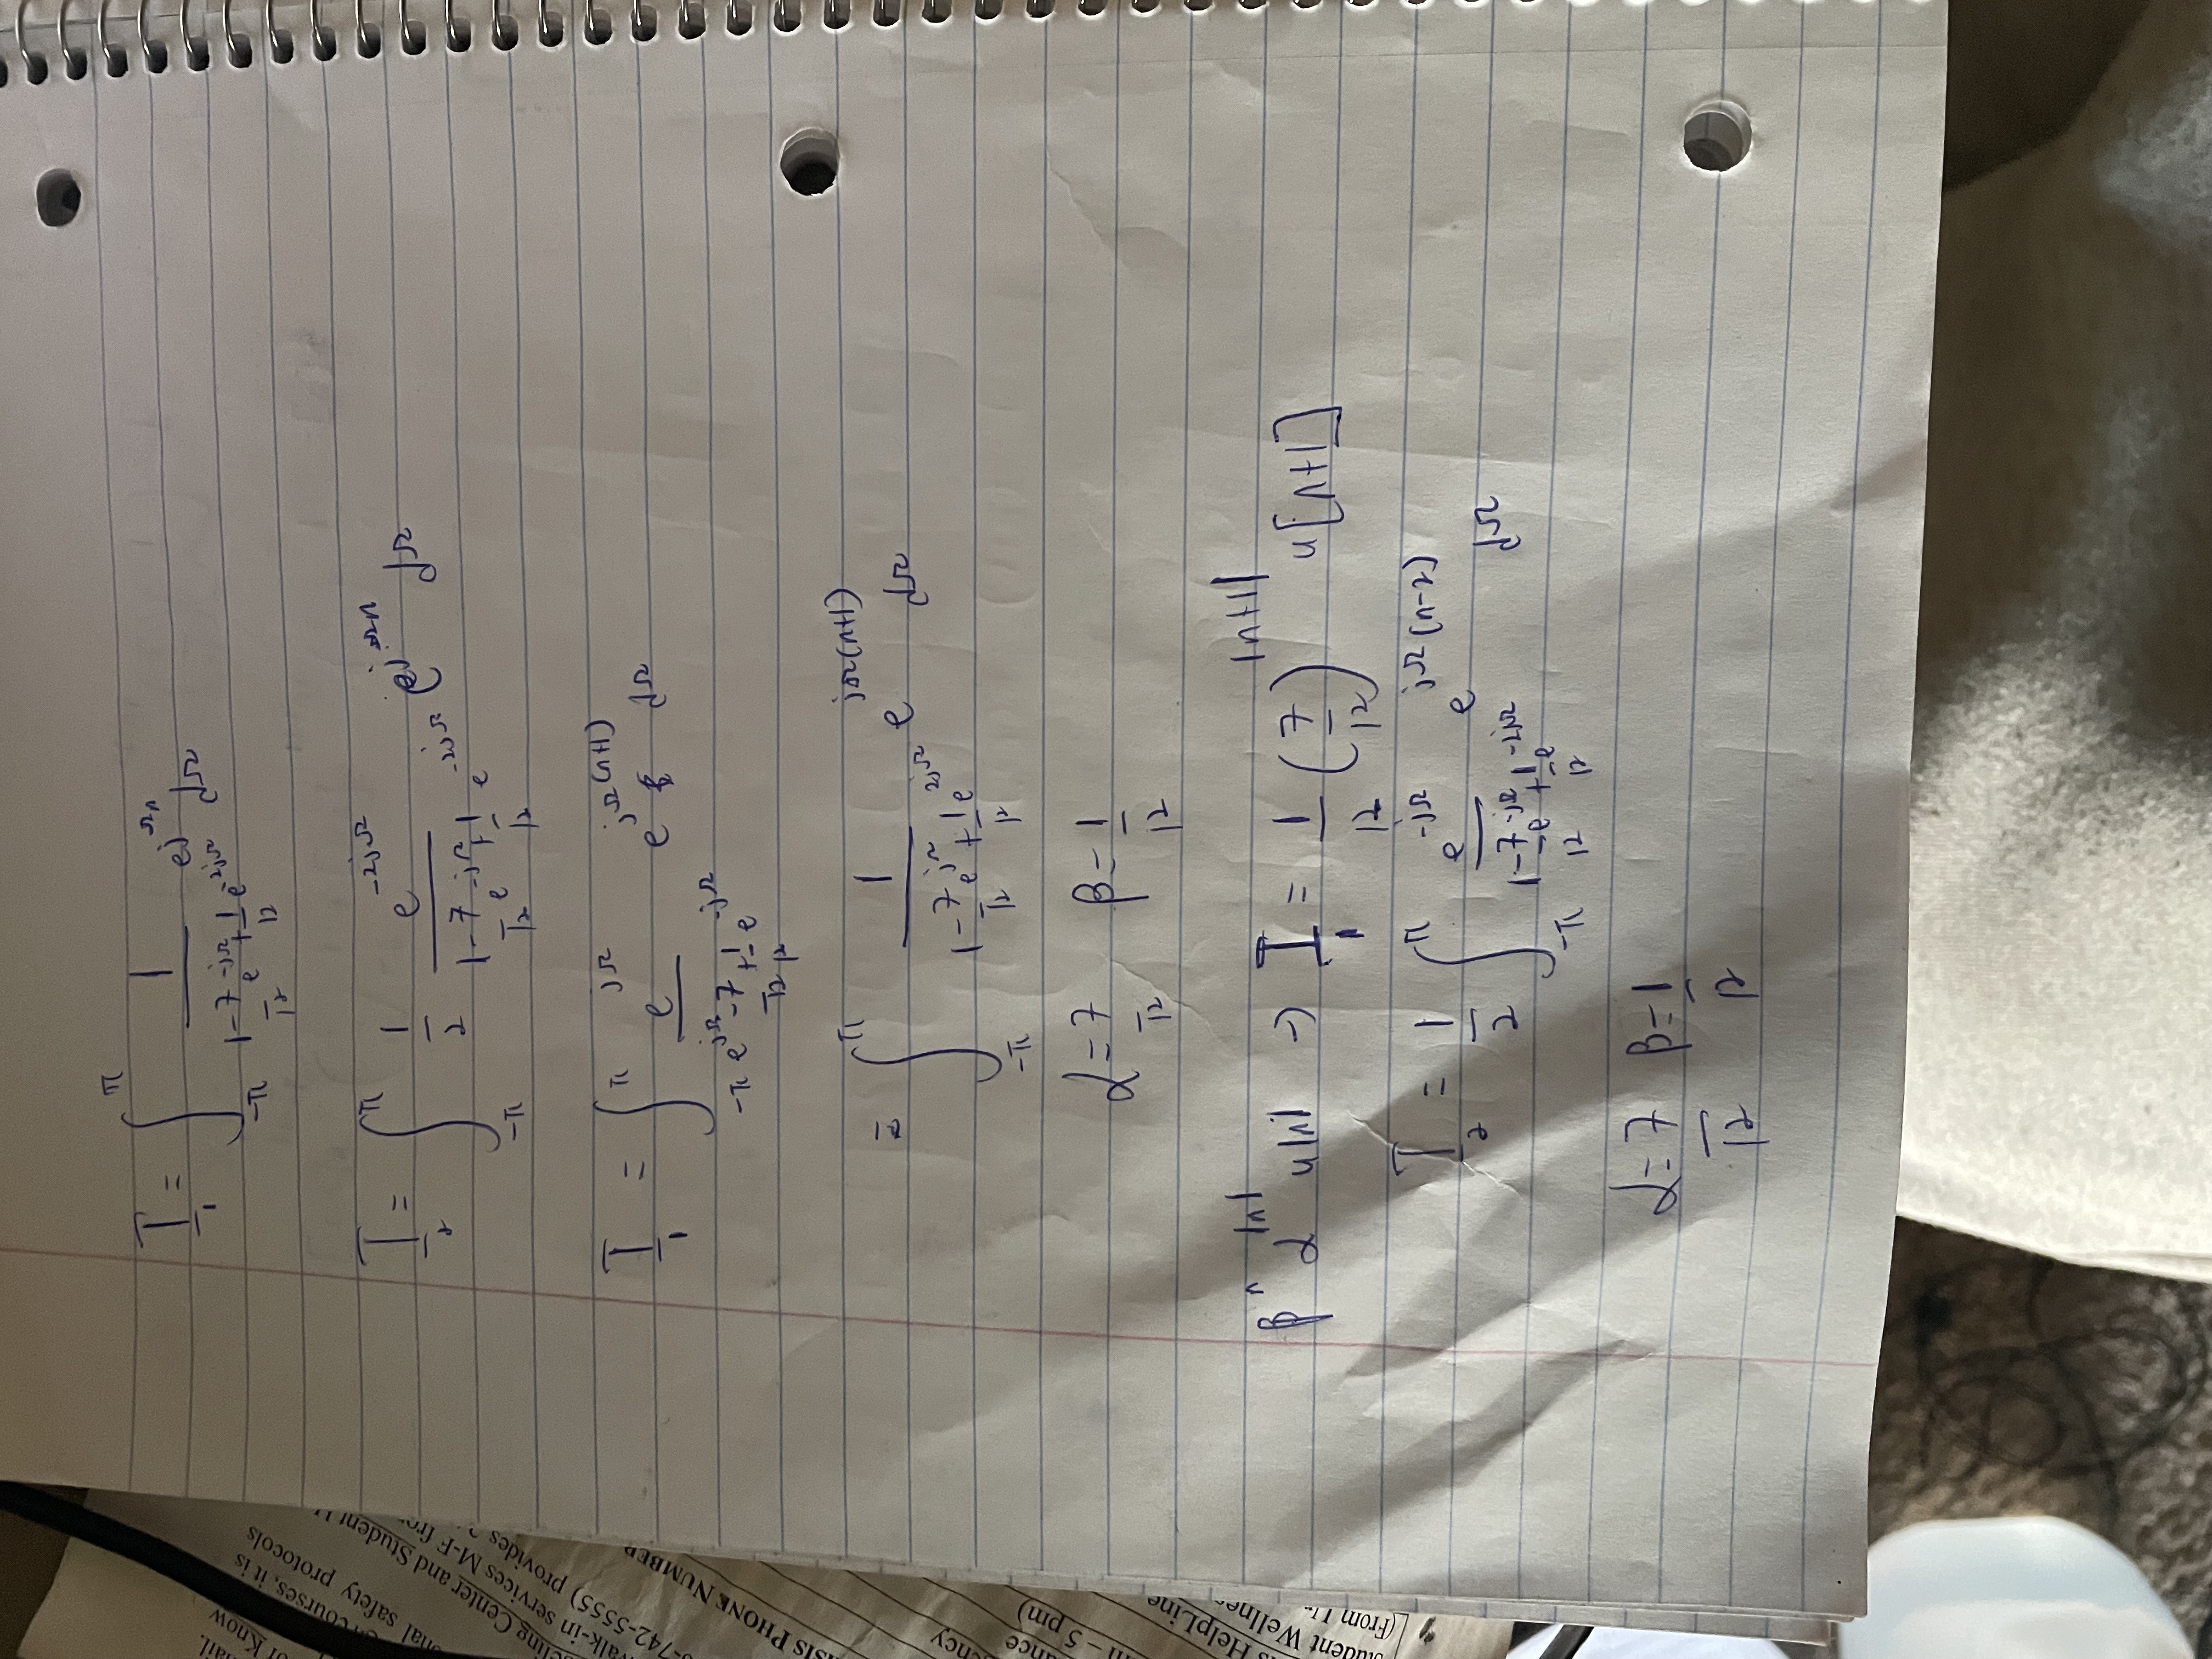 I₁ = ∫_{-π}^{π} 1/(1 - 7/12 e^{-jΩ} + 1/12 e^{-2jΩ}) e^{jΩn} dΩ
I₂ = ∫_{-π}^{π} 1/2 e^{-2jΩ}/(1 - 7/12 e^{-jΩ} + 1/12 e^{-2jΩ}) e^{jΩn} dΩ
I₁ = ∫_{-π}^{π} e^{jΩ}/(e^{jΩ} - 7/12 + 1/12 e^{-jΩ}) e^{jΩ(n+1)} dΩ
= ∫_{-π}^{π} 1/(1 - 7/12 e^{jΩ} + 1/12 e^{2jΩ}) e^{jΩ(n+1)} dΩ
α = 7/12 β = 1/12
β^n α^{|n|} u|n| → I₁ = 1/12 (7/12)^{|n+1|} u[n+1]
I₂ = 1/2 ∫_{-π}^{π} e^{-jΩ}/(1 - 7/12 e^{-jΩ} + 1/12 e^{-2jΩ}) e^{jΩ(n-2)} dΩ
α = 7/12 β = 1/12
ail.
Know
courses, it is
safety protocols
Center and Student
walk-in services M-F
742-5555) provides
PHONE NUMBER
– 5 pm)
HelpLine
(From